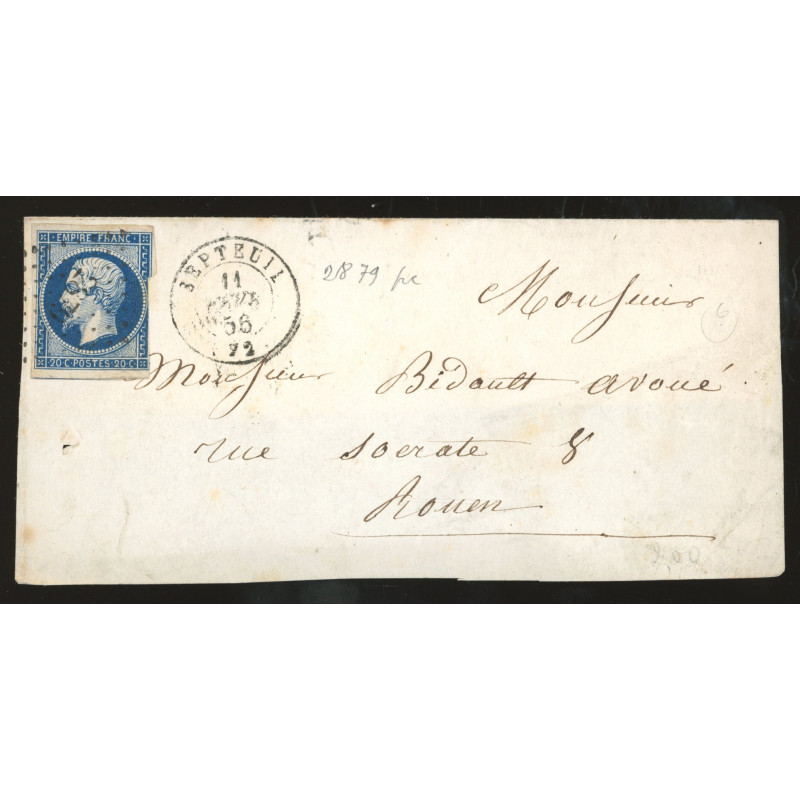 EMPIRE FRANC
20 C POSTES 20 C
SEPTEUIL
11
56
72
2879 pc
Monsieur
6
Monsieur Bidault avoué
rue Socrate 8
Rouen